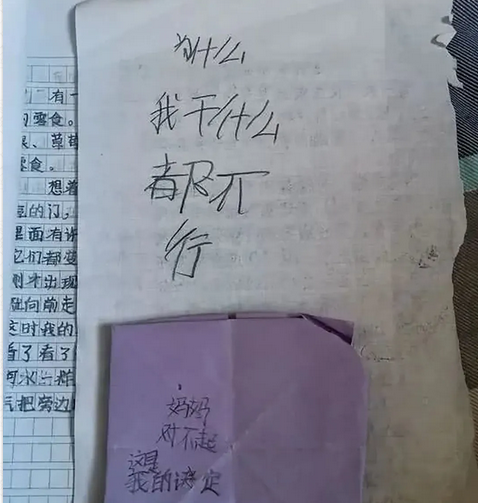 为什么
我干什么
都不
行
妈妈
对不起
这是
我的决定
有一
零食。
、草莓
零食。
想着
的门,
里面有许
它们都变
刚才出现
向前走
这时我的
看了看了
河水一
把旁边